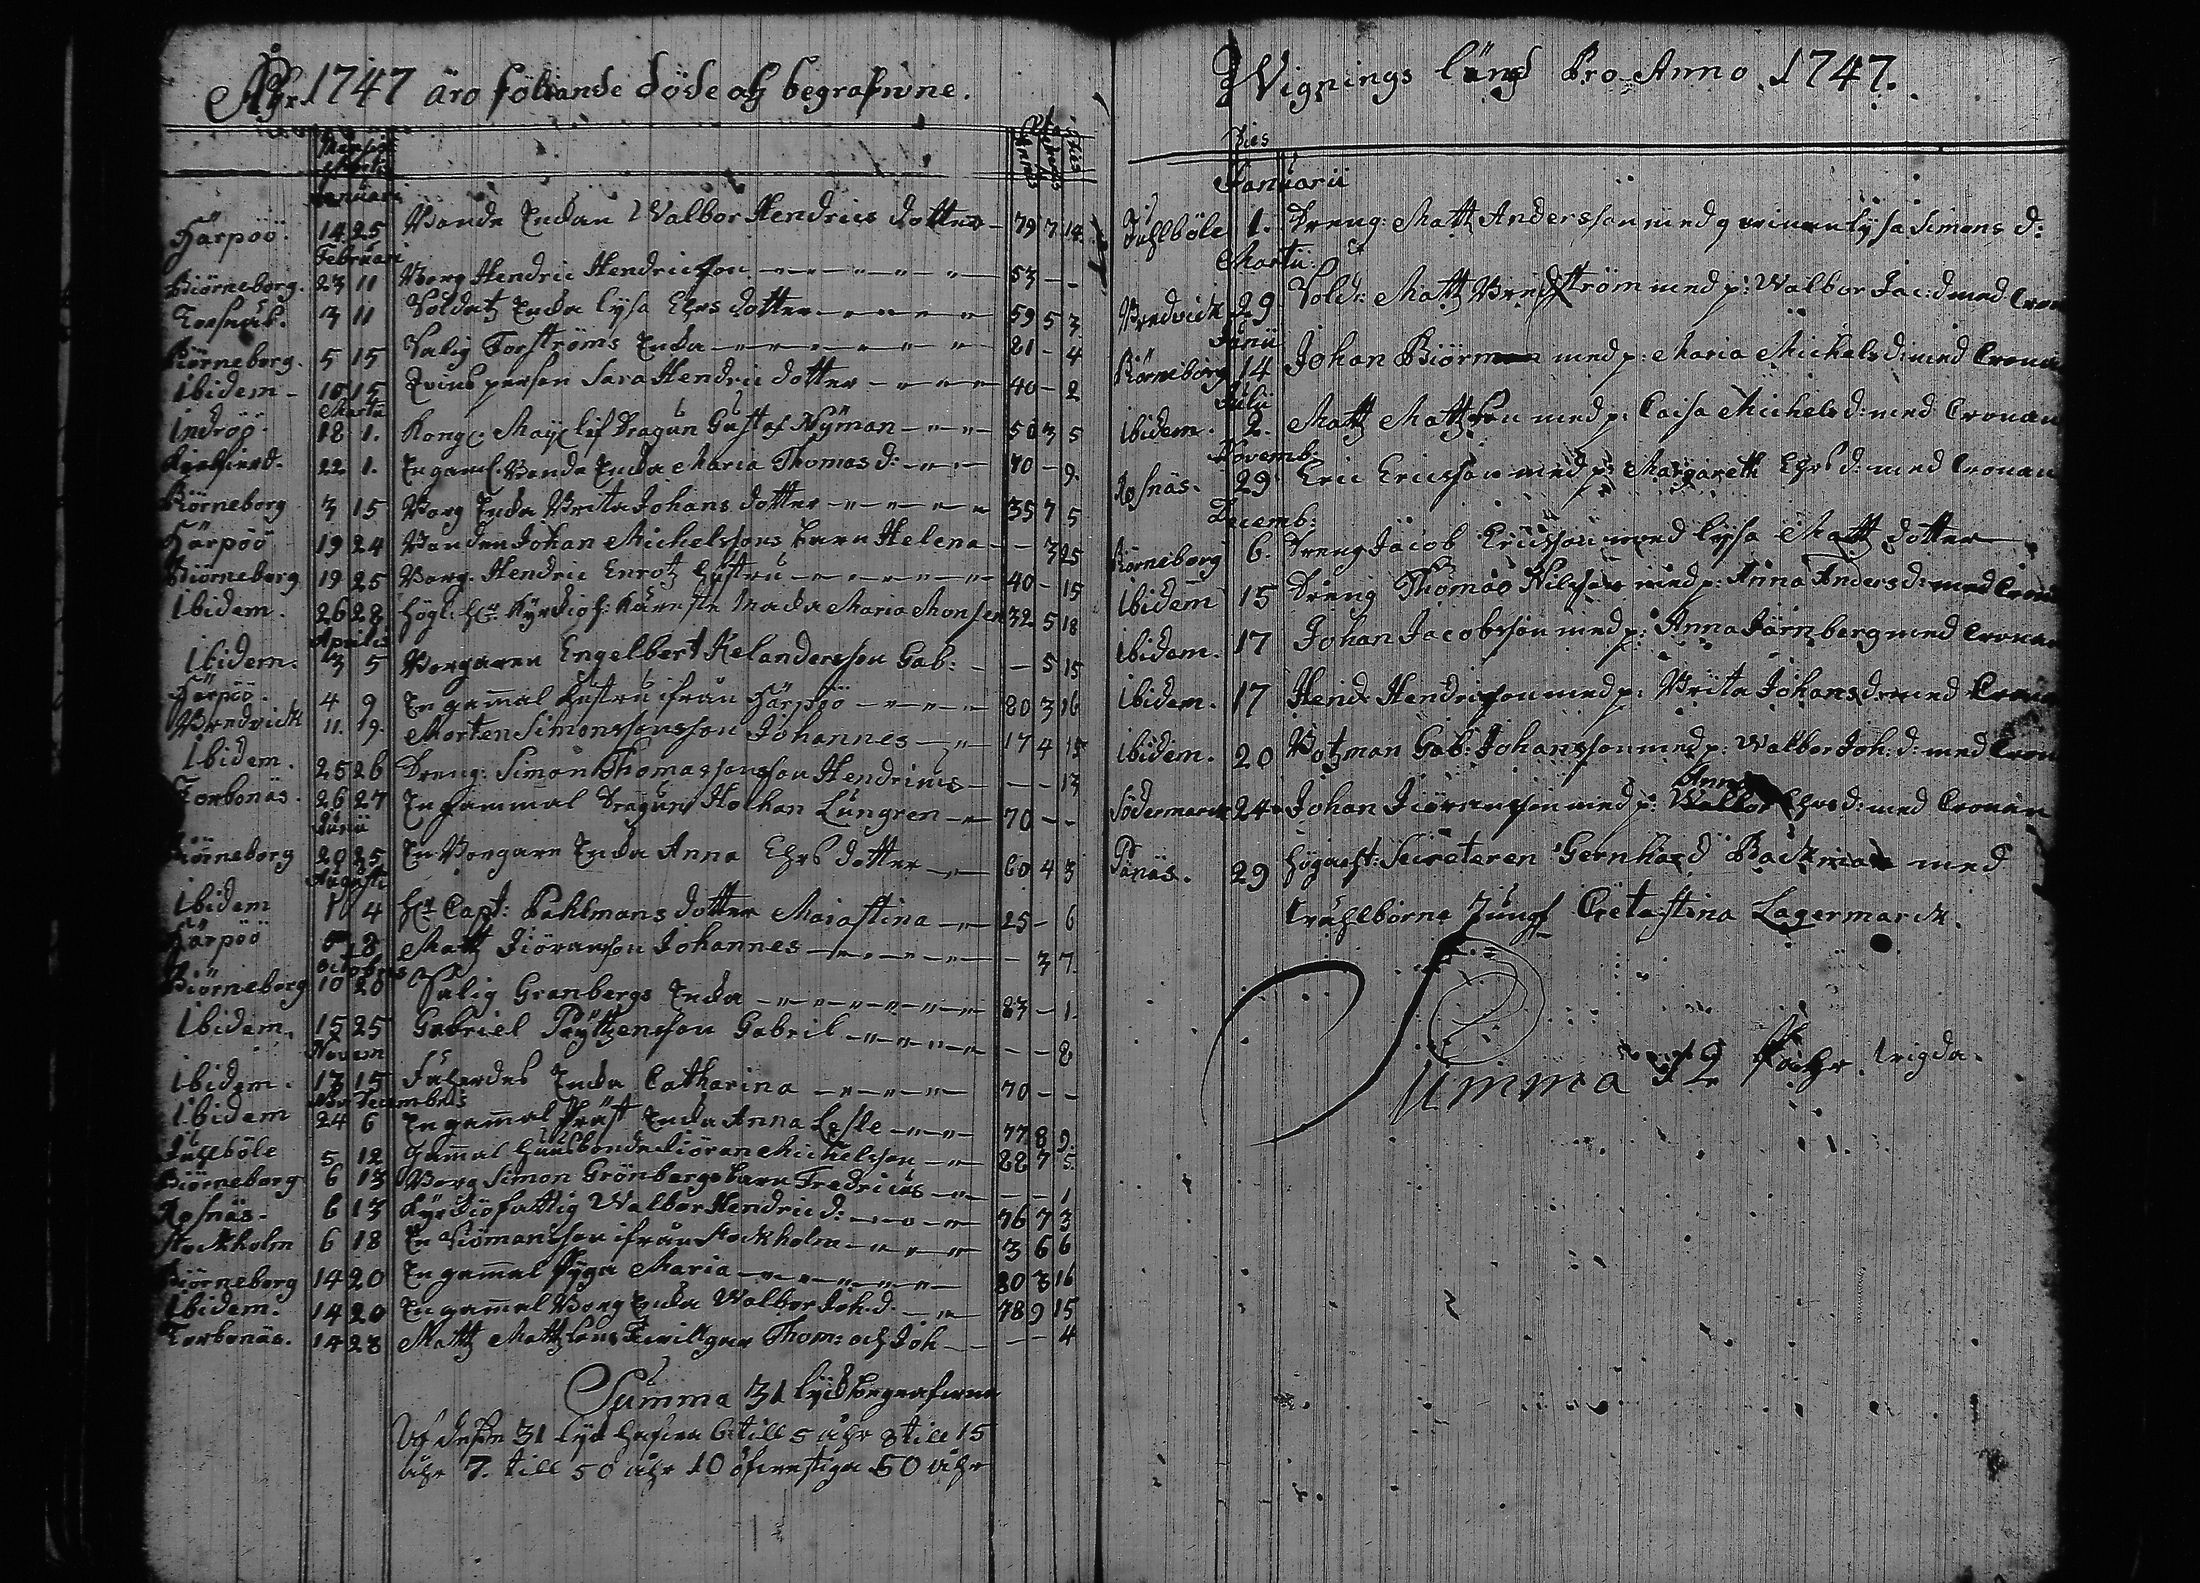 Åhr 1747 äro föliande döde och begrafwne.
Mensis
Mortis
Ætas
Annus Mens Dies
Januari
Härpöö. 14 25 Bonde Enckan Walbor Hendrics dotter 79 7 14
Februari
Biörneborg. 23 11 Borg Hendric Hendricsson 53 - -
3 11 Soldatz Encka Lysa Ehrs dotter 59 5 3
Biörneborg. 5 15 Salig Forströms Encka 81 - 4
Ibidem 10 15 Qvinsperson Sara Hendrics dotter 40 - 2
Martii
Inderöö. 18 1. Kongl. Maij:tz Dragun Gustaf Nÿman 50 3 5
22 1. En gaml. Bonde Encka Maria Thomas d: 70 - 9.
Biörneborg 3 15 Borg Encka Brita Johans dotter 35 7 5
Härpöö 19 24 Bonden Johan Michelssons barn Helena - 3 25
Biörneborg 19 25 Borg. Hendric Enrotz hustru 40 - 15
Ibidem. 26 28 Maria Monsen 32 5 18
Aprilis
Ibidem. 3 5 Borgaren Engelbert Kelanderssson Gab: - 5 15
Härpöö. 4 9 En gammal hustru ifrån Härpöö 80 3 16
Bredvick 11. 19. Morten Simonssons son Johannes 17 4 15
Ibidem. 25 26 Dreng: Simon Thomassons son Hendricus - - 13
Torbonäs. 26 27 En gammal Dragun Johan Lungren 70 - -
Junii
Biörneborg 20 25 En Borgare Encka Anna Ehrs dotter 60 4 3
Augusti
Ibidem 1 4 Hr Capt: Pahlmans dotter Maiastina 25 - 6
Härpöö 8 Matz Jöransson Johannes - 3 7
Octobris
Biörneborg 10 20 Salig Granbergs Encka 83 - 1.
Ibidem. 15 25 Gabriel Prÿtzensson Gabriel - - 8
Novem
Ibidem. 13 15 Encka Catharina 70 - -
Decembris
Ibidem 24 6 En gammal Präst Encka Anna Lesle 77 8 9.
Juhlböle 5 12 Gammal Huusbonde Jöran Michelsson 88 7 5
Biörneborg 6 13 Borg Simon Grönbergs barn Fredricus - - 1
Rosnäs. 6 13 Kyrckiofattig Walbor Hendric d: 76 7 3
Stockholm 6 18 En Siömansson ifrån Stockholm 3 6 6
Biörneborg 14 20 En gammal Pyga Maria 80 3 16
Ibidem. 14 20 En gammal Borg Encka Walbor Joh. d. 78 9 15
Torbonäs. 14 28 Matz Matzsons Twillingar Thom: och Joh - - 4
Summa 31 lÿck begrafwna
Af desse 31 lÿck hafwa 6 till 5 åhr 8 till 15
åhr 7. till 50 åhr 10 öfwerstiga 50 åhr
Wignings längd Pro Anno 1747.
Dies
Januarii
Juhlböle 1. Dreng: Matz Andersson med qwinan Lysa Simons d:
Martii.
Bredvick 29 Sold: Matz Bredström med p: Walbor Jac: d med Cron
Junii
Biörneborg 14 Johan Biörman med p: Maria Michels d: med Cronan
Julii
Ibidem. 2. Matz Matzson med p: Caisa Michels d: med Cronan
Novemb:
Rosnäs. 29 Eric Ericsson med p: Margareth Ehrs d: med Cronan
Decemb:
Biörneborg 6. Dreng Jacob Ericsson med Lysa Matz dotter
Ibidem 15 Dreng Thomas Nilsson med p: Anna Anders d: med Cron
Ibidem. 17 Johan Jacobsson med p: Anna Järnberg med Cronan
Ibidem. 17 Hend: Hendricsson med p: Brita Johans d: med Cronan
Ibidem. 20 Botzman Gab: Johansson med p: Walbor Joh: d: med Cron
Anna
Södermarck 24 Johan Jöransson med p: Walbor Ehrs d: med Cronan
Pänäs. 29 Högacht: Secreteren Gernhard Backman med
Wählborne Jungf Cretastina Lagermarck.
Summa 12 Pahr wigda.